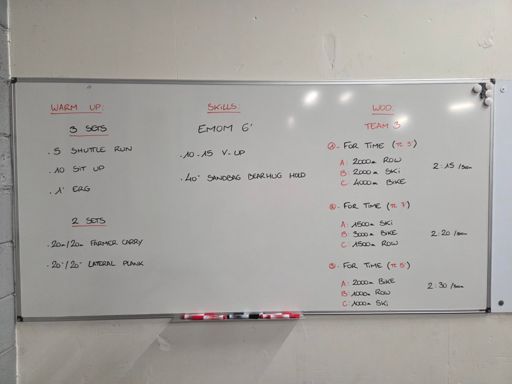 WARM UP:
3 SETS
. 5 SHUTTLE RUN
. 10 SIT UP
. 1' ERG
2 SETS
. 20m/20m FARMER CARRY
. 20"/20" LATERAL PLANK
SKILLS:
EMOM 6'
. 10-15 V-UP
. 40" SANDBAG BEARHUG HOLD
WOD:
TEAM 3
①- FOR TIME
A: 2000m ROW
B: 2000m SKI
C: 4000m BIKE
2:15
②- FOR TIME
A: 1500m SKI
B: 3000m BIKE
C: 1500m ROW
2:20
③- FOR TIME
A: 2000m BIKE
B: 1000m ROW
C: 1000m SKI
2:30